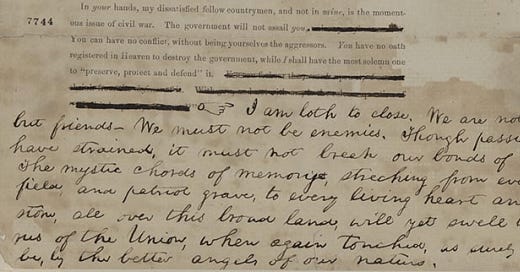 In your hands, my dissatisfied fellow countrymen, and not in mine, is the moment-
7744
ous issue of civil war. The government will not assail you,
You can have no conflict, without being yourselves the aggressors. You have no oath
registered in Heaven to destroy the government, while I shall have the most solemn one
to "preserve, protect and defend" it.
I am loth to close. We are no
but friends— We must not be enemies. Though passi
have strained, it must not break our bonds of
The mystic chords of memory, streching from eve
field, and patriot grave, to every living heart an
stone, all over this broad land, will yet swell
rus of the Union, when again touched, as surely
be, by the better angels of our nature.